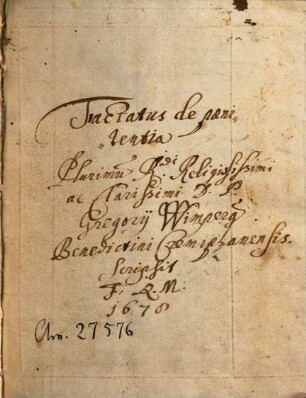 Tractatus de pæni„
„tentia
Plurimũ R.di Religiosissimi
ac Clarissimi D. P.
Gregorij Wimperg
Benedictini Cremiphanensis.
Scripsit
F. R. M.
1678
Clm. 27576